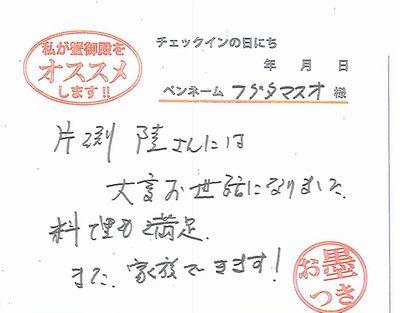 私が蟹御殿を
オススメ
します!!
チェックインの日にち
年 月 日
ペンネーム フジタマスオ 様
片渕 陸さんには
大変お世話になりました。
料理も満足。
また、家族できます!
お墨
つき